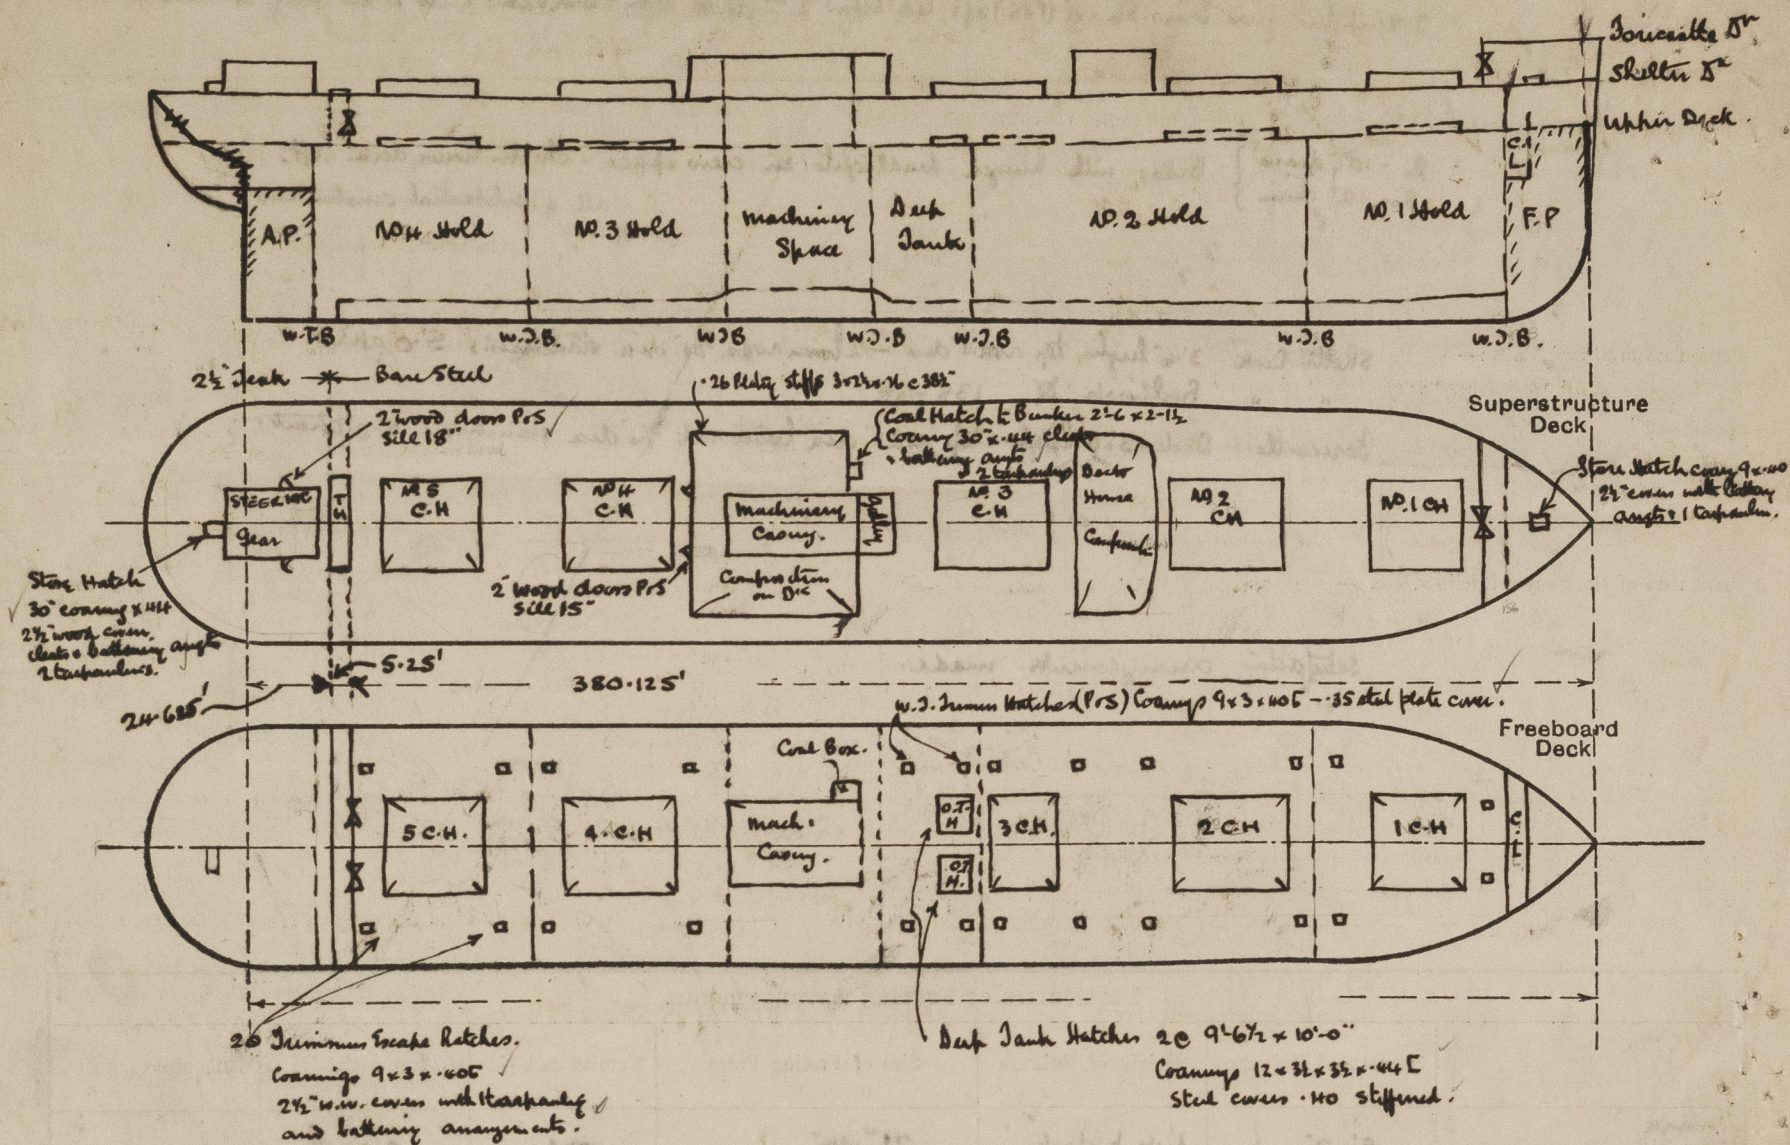 Forecastle Dk
Shelter Dk
Upper Deck.
C.L
A.P.
No 4 Hold
No. 3 Hold
Machinery
Space
Deep
Tank
No. 2 Hold
No. 1 Hold
F.P
W.T.B
W.T.B.
W.T.B
W.T.B
W.T.B
W.T.B
W.T.B.
2½" Teak
Bare Steel
.26 Plating stiffs 3×2½×.26 @ 38½"
Superstructure
Deck
2" wood doors P&S
Sill 18"
Coal Hatch to Bunker 2'-6 × 2-1½
Coaming 30" × .44 cleats
& battening angls
& 2 tarpaulins
Store Hatch coamg 9 × .40
2½" covers with battening
angls & 1 tarpaulin.
STEERING
Gear
T
H
No. 5
C.H
No 4
C.H
Machinery
Casing.
Galley
No. 3
C.H
Deck
House
Composition
No. 2
CH
No. 1 CH
Composition
on Dk
2" Wood doors P&S
Sill 15"
Store Hatch
30" coaming × .44
2½" wood covers,
cleats & battening angls
2 tarpaulins.
156
5.25'
24.625'
380.125'
W.T. Trimmg Hatches (P&S) Coamings 9×3×.40[ - .35 steel plate cover.
Freeboard
Deck
Coal Box.
5 C.H.
4. C.H
Mach.
Casing.
O.T.
H
O.T
H.
3 C.H.
2 C.H
1 C.H
C.L
20 Trimming Escape Hatches.
Coamings 9×3×.40[
2½" w.w. covers with 1 tarpaulin
and battening arrangements.
Deep Tank Hatches 2 @ 9'-6½ × 10'-0"
Coamings 12×3½×3½×.44 [
Steel covers .40 stiffened.